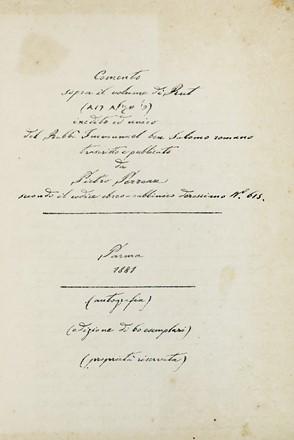 Comento
sopra il volume di Rut
(פי' מגלת רות)
inedito ed unico
del Rabbi Immanuel ben Salomo romano
trascritto e pubblicato
da
Pietro Perreau
secondo il codice ebreo-rabbinico derossiano Nº. 615.
Parma
1881
(autografia)
(edizione di 60 esemplari)
(proprietà riservata)